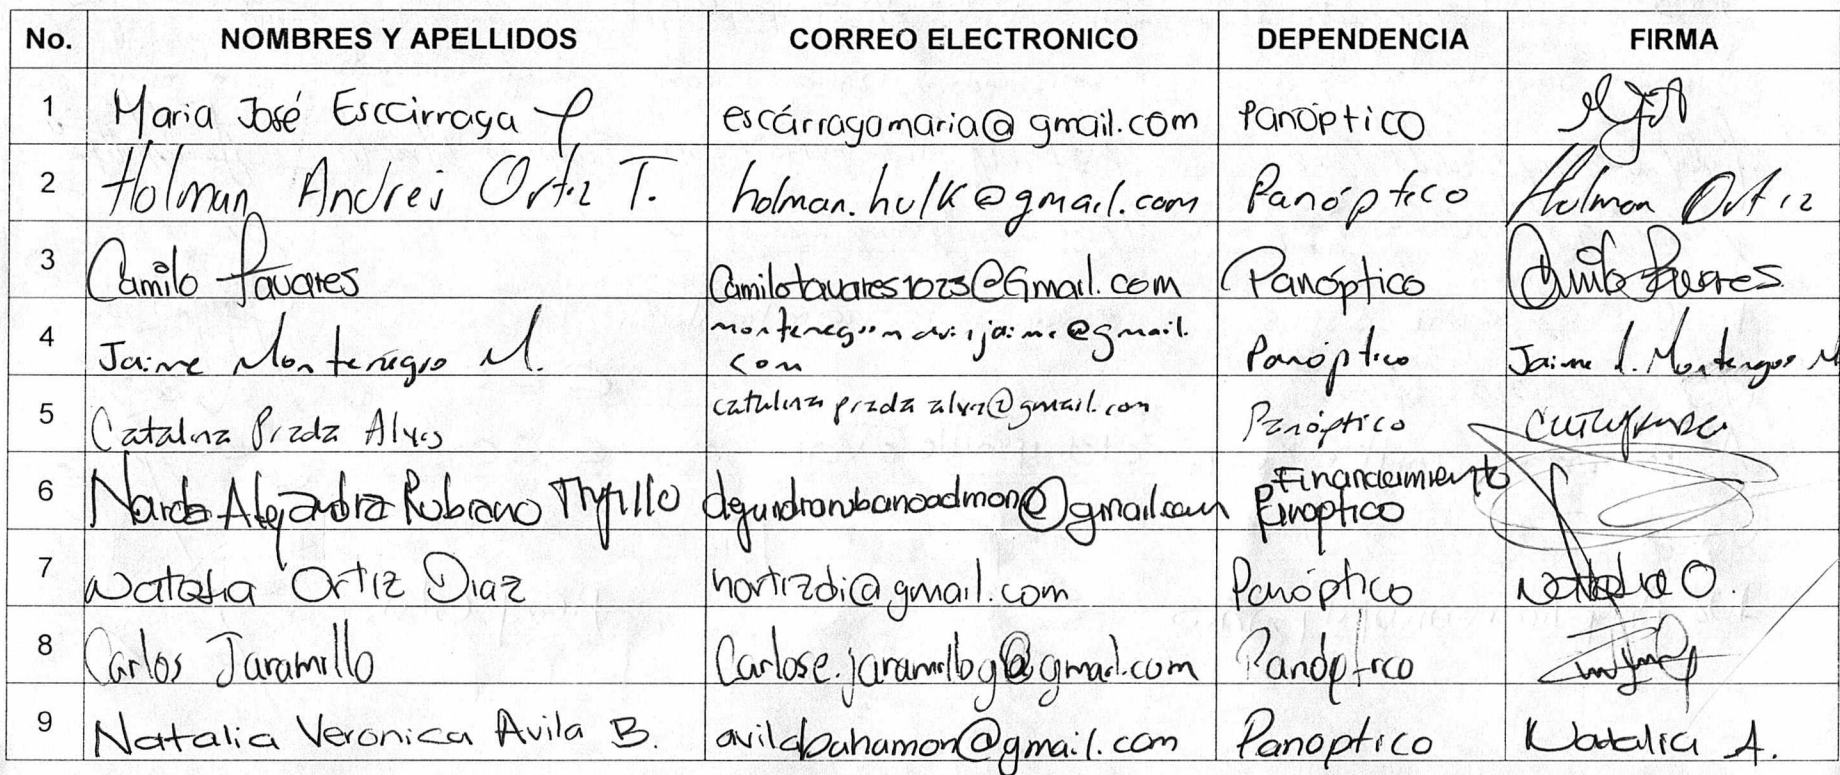 No. NOMBRES Y APELLIDOS CORREO ELECTRONICO DEPENDENCIA FIRMA
1 Maria José Escárraga escárragamaria@gmail.com Panóptico
2 Holman Andres Ortiz T. holman.hulk@gmail.com Panóptico Holman Ortiz
3 Camilo Tavares Camilotavares1023@Gmail.com Panóptico Camilo Tavares
4 Jaime Montenegro M. @gmail.
com Panóptico Jaime Montenegro M
5 Catalina Prada Alves catalina prada alves@gmail.com Panóptico
6 Alejandra Rubiano Trujillo @gmail.com Financiamiento
Panoptico
7 Natalia Ortiz Diaz nortizdi@gmail.com Panóptico Natalia O.
8 Carlos Jaramillo Carlose.jaramillog@gmail.com Panóptico
9 Natalia Veronica Avila B. avilabahamon@gmail.com Panoptico Natalia A.